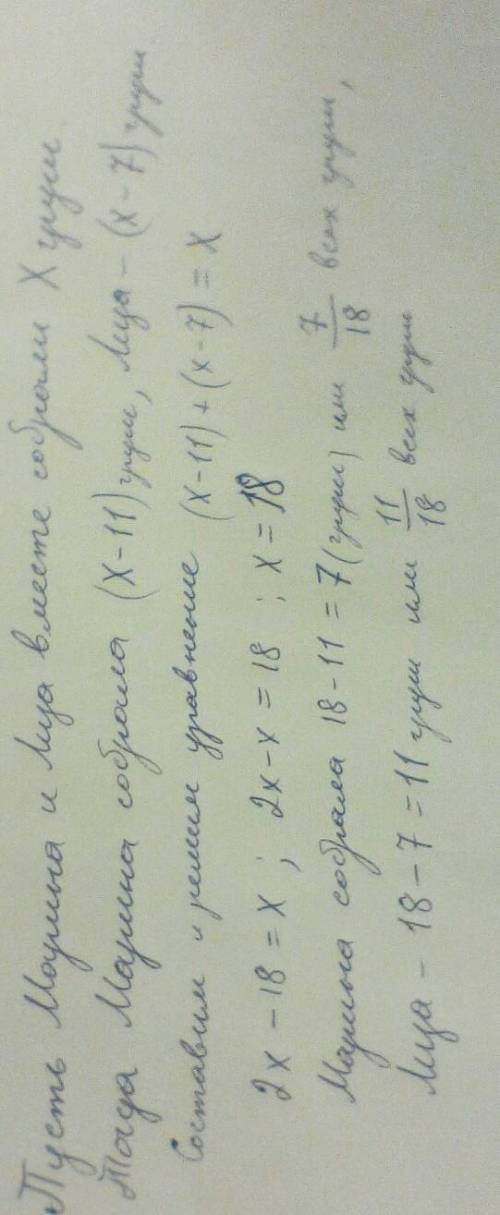 Пусть Марина и Лида вместе собрали X груш.
Тогда Марина собрала (x-11) груш, Лида - (x-7) груш
Составим и решим уравнение (x-11)+(x-7)=x
2x-18=x; 2x-x=18; x=18
Марина собрала 18-11=7(груш) или 7/18 всех груш,
Лида - 18-7=11 груш или 11/18 всех груш